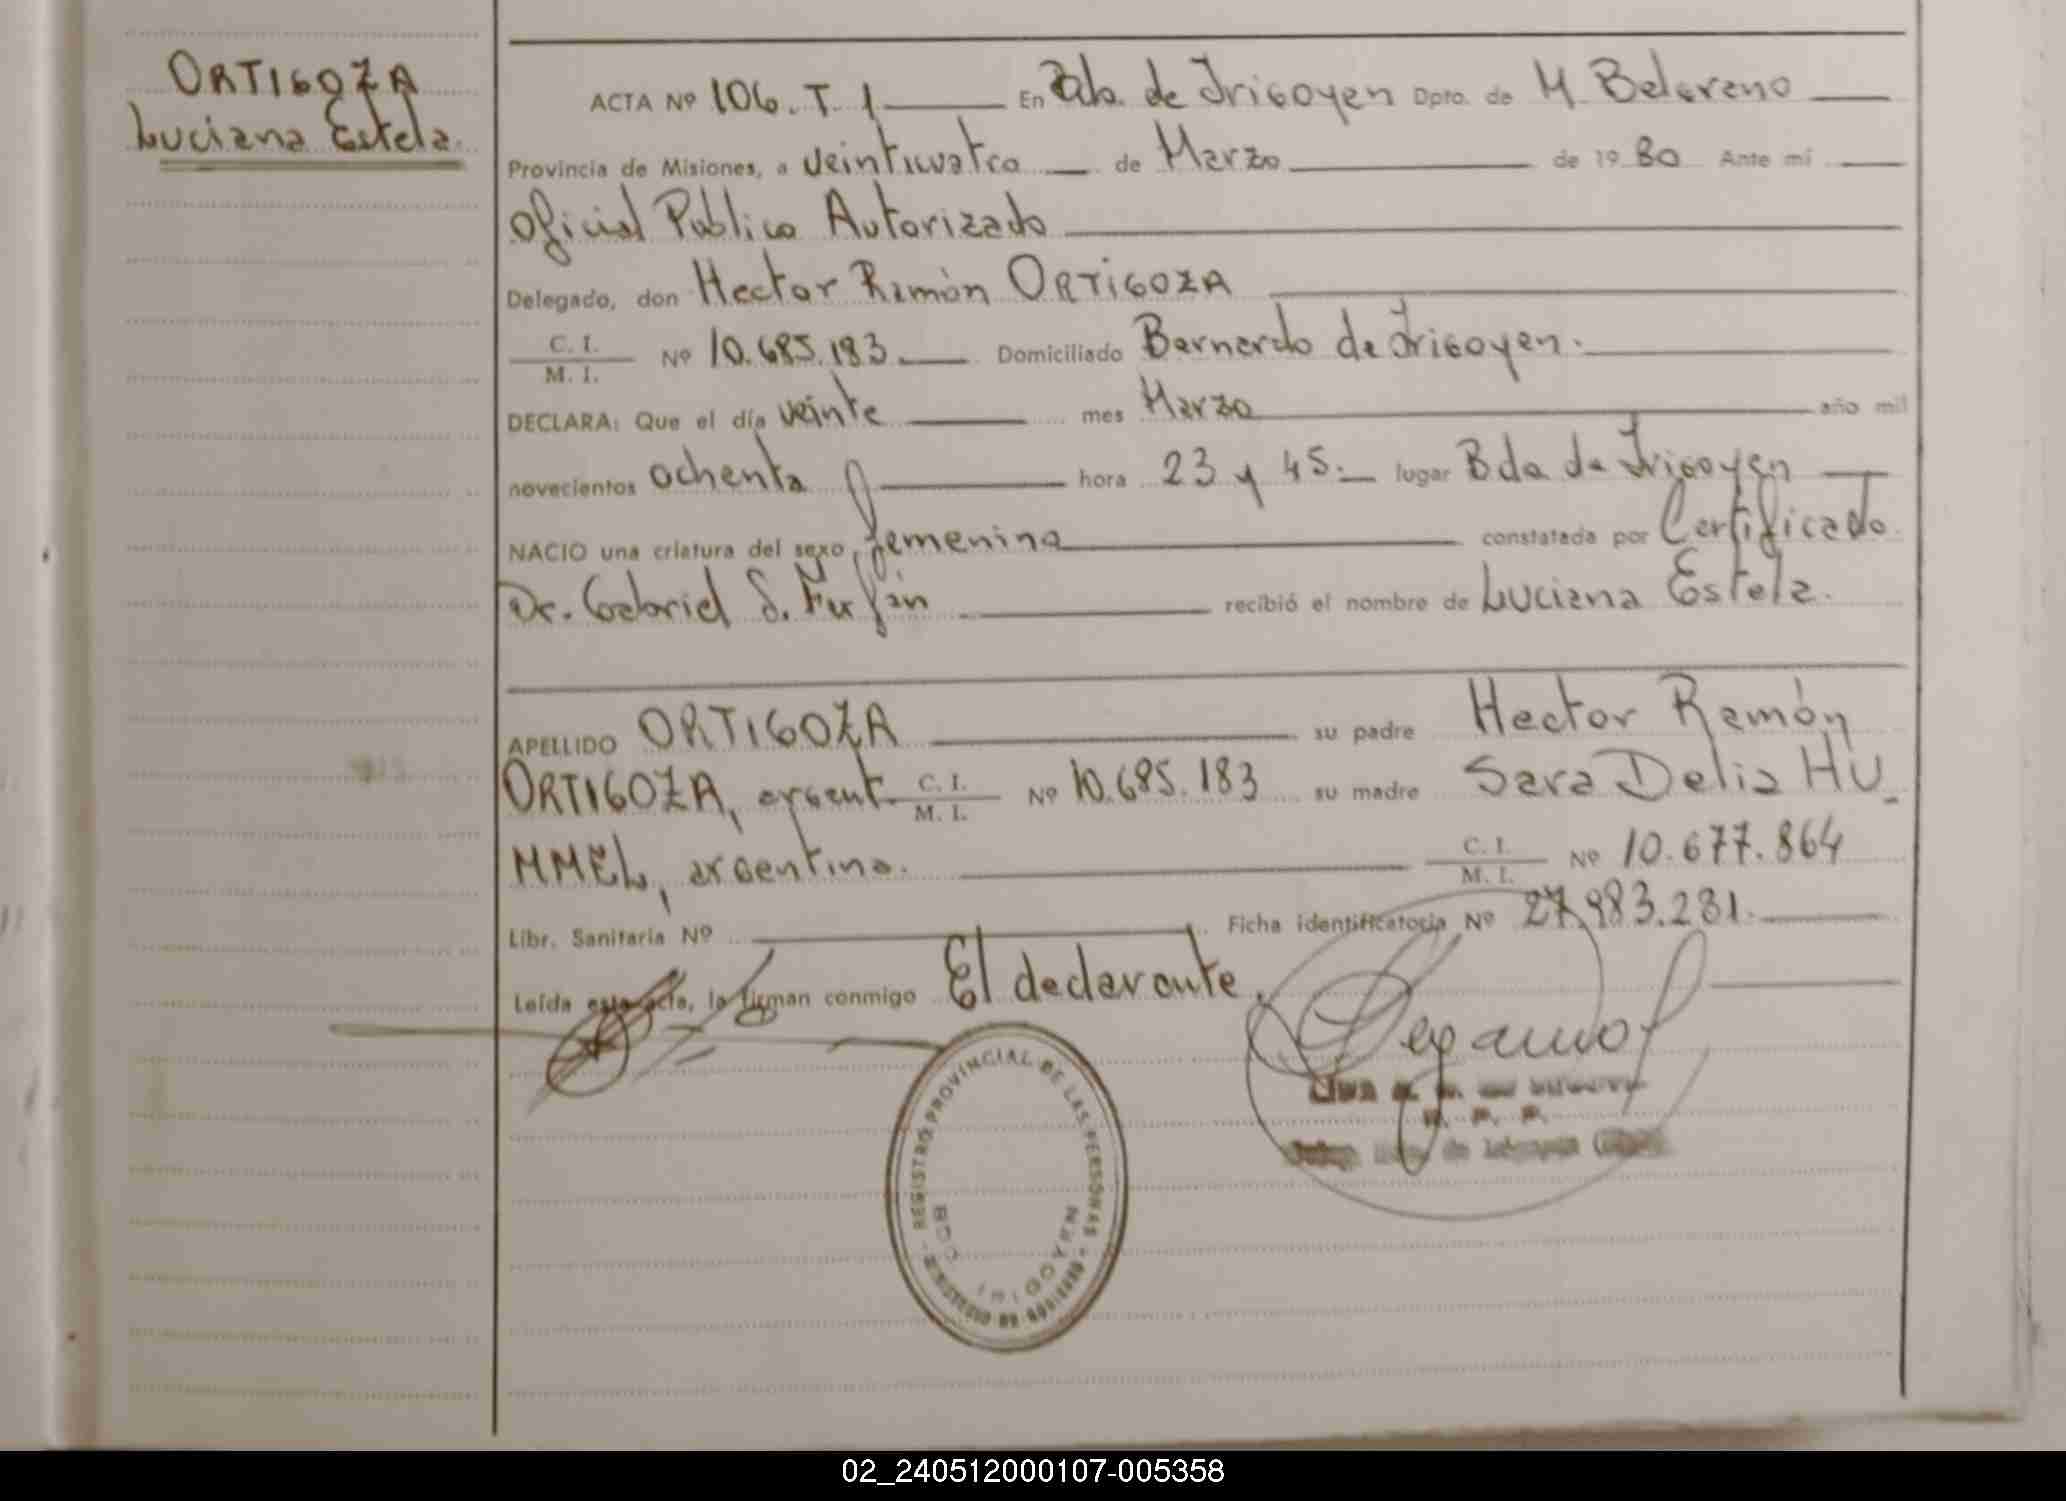 ORTIGOZA
Luciana Estela.
ACTA Nº 106. T. 1 En Bdo. de Irigoyen Dpto. de M. Belgrano
Provincia de Misiones, a veinticuatro de Marzo de 1980 Ante mí
Oficial Público Autorizado
Delegado, don Hector Ramón ORTIGOZA
C. I.
M. I. Nº 10.685.183 Domiciliado Bernardo de Irigoyen.
DECLARA: Que el día veinte mes Marzo año mil
novecientos ochenta hora 23 y 45. lugar Bdo de Irigoyen
NACIO una criatura del sexo femenino constatada por Certificado
Dr. Gabriel S. recibió el nombre de Luciana Estela.
APELLIDO ORTIGOZA su padre Hector Ramón
ORTIGOZA, argent. C. I. M. I. Nº 10.685.183 su madre Sara Delia HU_
MMEL, argentina. C. I. M. I. Nº 10.677.864
Libr. Sanitaria Nº Ficha identificatoria Nº 27.983.231.
Leída esta acta, la firman conmigo El declarante.
REGISTRO PROVINCIAL DE LAS PERSONAS
MINISTERIO DE GOBIERNO
BDO. IRIGOYEN
02_240512000107-005358